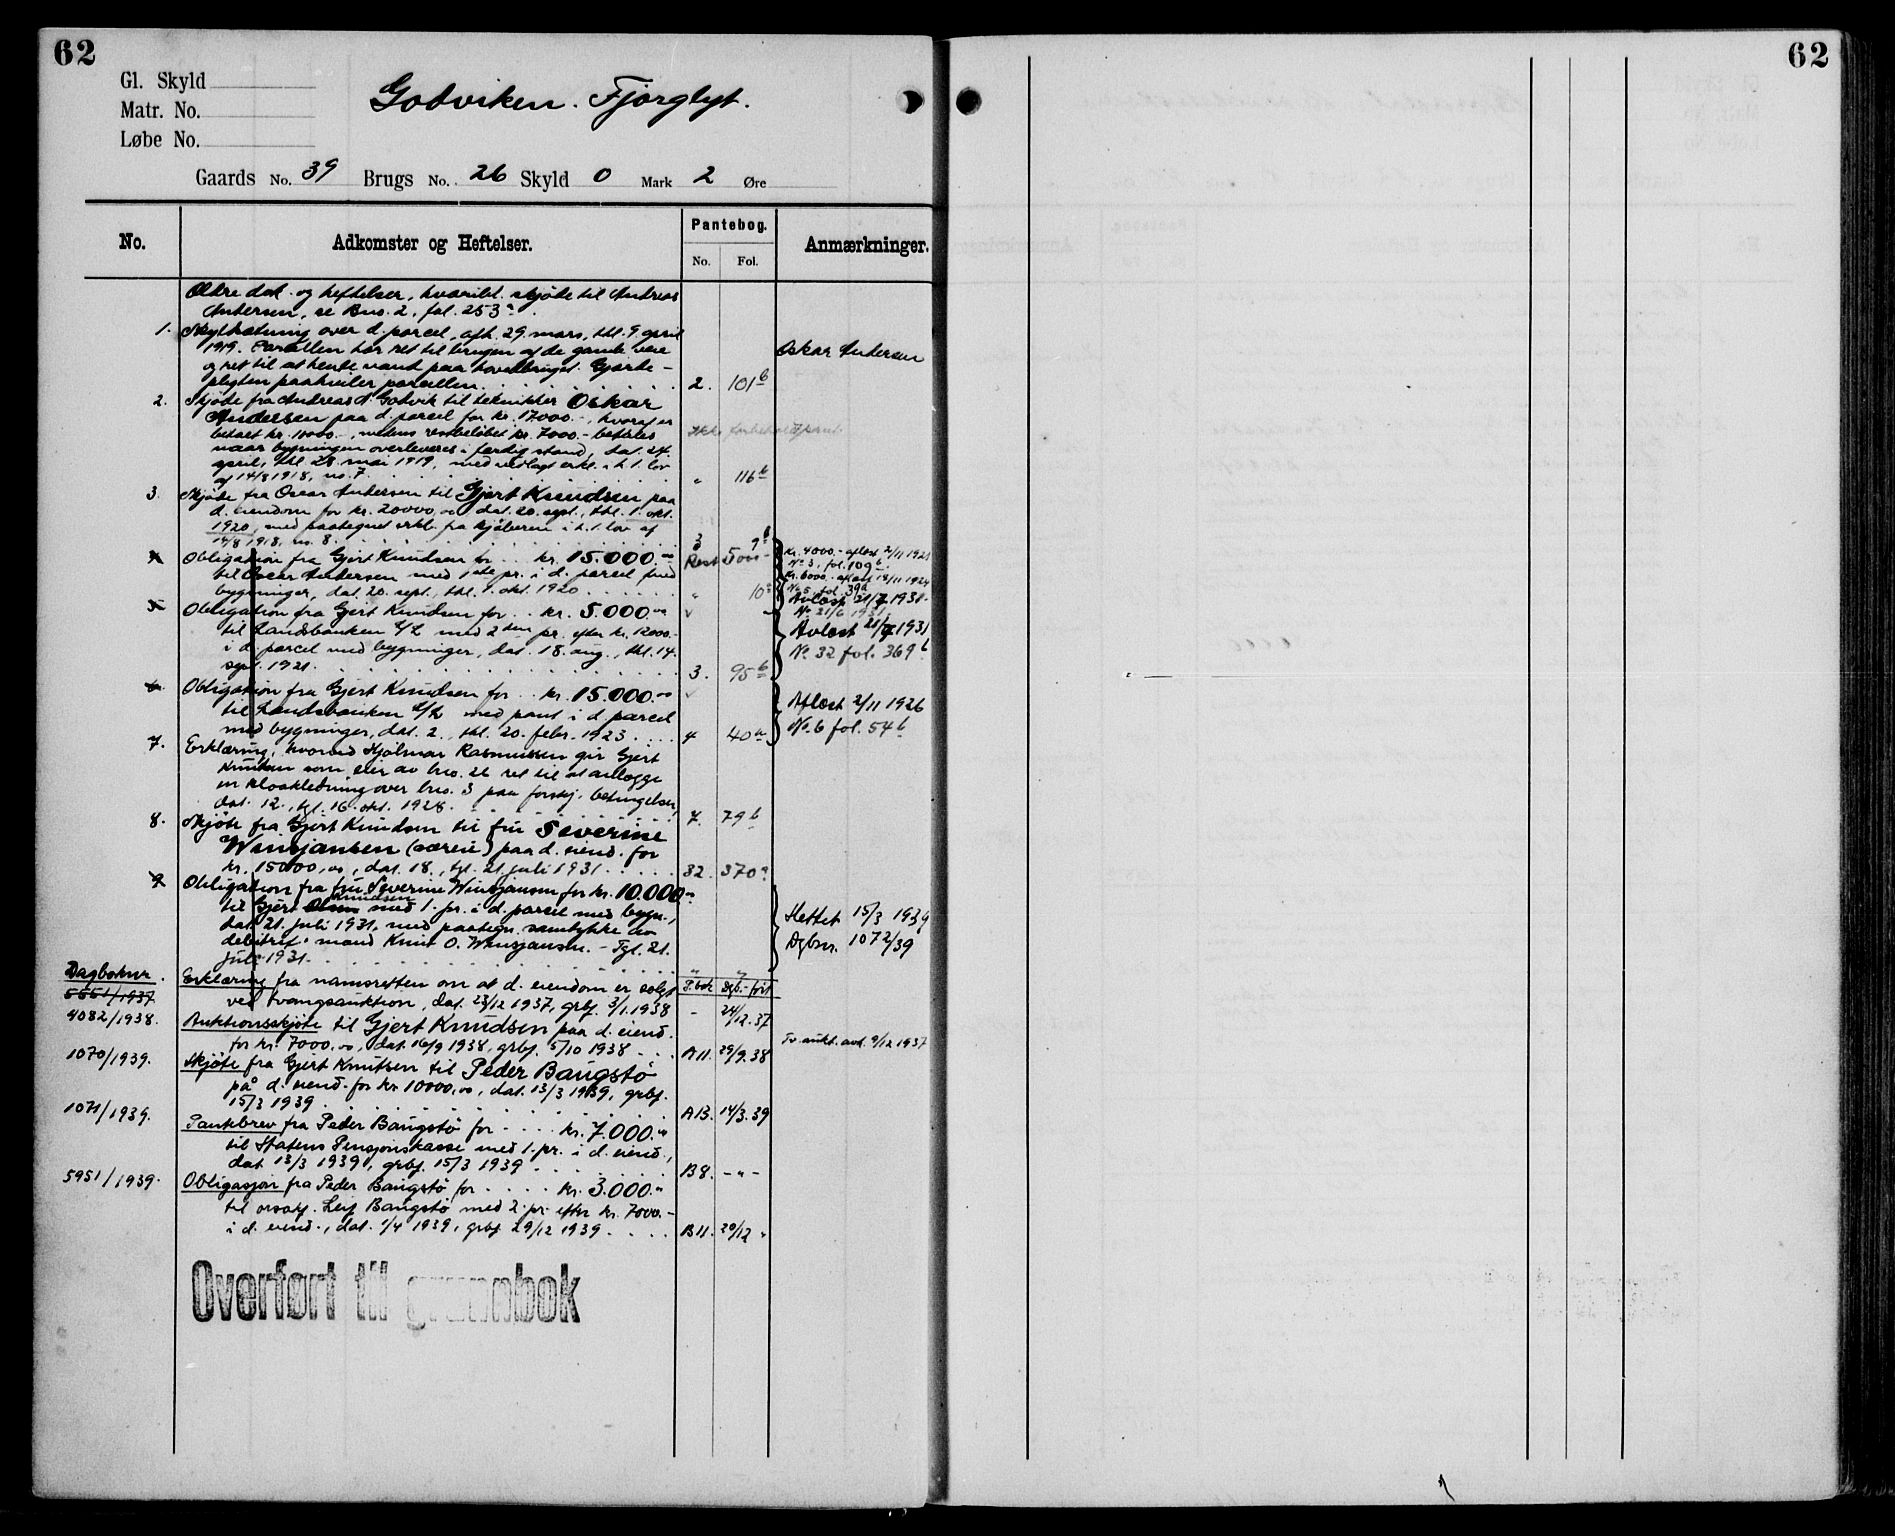 62
62
Gl. Skyld
Matr. No.
Løbe No.
Godviken. Fjørglyt.
Gaards No. 39 Brugs No. 26 Skyld 0 Mark 2 Øre
No.
Adkomster og Heftelser.
Pantebog.
No. Fol.
Anmærkninger.
Ældre dok. og heftelser, hvoribl. skjøde til Andreas
Andersen, se Bno. 2, fol. 253a.
1. Skyldsætning over d. parcel, afh. 29. mars, thl. 9 april
1919. Parcellen har ret til brugen af de gamle veie
og ret til at hente vand paa hovedbruget. Gjærde-
pligten paahviler parcellen. 2. 101b
Oskar Andersen
2. Skjøde fra Andreas A. Godvik til tekniker Oskar
Andersen paa d. parcel for kr. 17000.-, hvoraf er
betalt kr. 10000.-, medens restbeløbet kr. 7000.- betales
Ikke forbeholdt pant.
naar bygningen overleveres i færdig stand, dat. 24.
april, thl. 28. mai 1919, med vedlagt erkl. i h. t. lov
af 14/8 1918, no. 7 " 116b
3. Skjøde fra Oscar Andersen til Gjert Knudsen paa
d. eiendom for kr. 20000,00 dat. 20. sept., thl. 1. okt.
1920, med paategnet erkl. fra kjøberen i h. t. lov af
14/8 1918, no. 8. 3 9b
4. Obligation fra Gjert Knudsen for kr. 15.000.00
Rest 5000-
til Oscar Andersen med 1ste pr. i d. parcel med
bygninger, dat. 20. sept., thl. 1. okt. 1920 " 10a
Kr. 4000.- aflæst 2/11 1921
No 3, fol. 109b.
Kr. 6000.- aflæst 18/11 1924
No 5, fol. 39a
Avlæst 21/7 1931.
5. Obligation fra Gjert Knudsen for kr. 5.000.00
til Landsbanken A/L med 2den pr. efter kr. 12000.-
i d. parcel med bygninger, dat. 18. aug., thl. 14.
sept. 1921. 3. 95b
Avlæst 21/7 1931
No 32 fol. 369b
6. Obligation fra Gjert Knudsen for kr. 15.000.00
til Landsbanken A/L med pant i d. parcel
med bygninger, dat. 2., thl. 20. febr. 1923 4 40a
Aflæst 2/11 1926
No 6 fol. 54b
7. Erklæring, hvorved Hjalmar Rasmussen gir Gjert
Knudsen som eier av bno. 26 ret til at anlægge
en kloakledning over bno. 3 paa forskj. betingelser,
dat. 12., tgl. 16. okt. 1928. 7. 79b
8. Skjøte fra Gjert Knudsen til fru Severine
Winsjansen (særeie) paa d. eiend. for
kr. 15000,00, dat. 18., tgl. 21 juli 1931 32. 370a
9. Obligation fra fru Severine Winsjansen for kr. 10.000.00
til Gjert Olsen Knudsen med 1. pr. i d. parcel med bygn.,
dat. 21. juli 1931, med paategn. samtykke av
debitrix' mand Knut O. Winsjansen. - Tgl. 21.
juli 1931. " "
Slettet 15/3 1939
Dgbnr. 1072/39
Dagboknr. P.bok Dgb.-ført
5551/1937 Erklæring fra namsretten om at d. eiendom er solgt
ved tvangsauktion, dat. 23/12 1937, grbf. 3/1.1938 - 24/12.37
4082/1938. Auktionsskjøte til Gjert Knudsen paa d. eiend.
for kr. 7000.00, dat. 16/9 1938, grbf. 5/10 1938 A11. 29/9.38
Tv. aukt. avd. 9/12 1937
1070/1939. Skjøte fra Gjert Knutsen til Peder Baugstø
på d. eiend. for kr 10000,00, dat. 13/3 1939, grbf.
15/3 1939 A13. 14/3.39
1071/1939. Pantebrev fra Peder Baugstø for kr. 7.000.00
til Statens Pensjonskasse med 1. pr. i d. eiend.,
dat. 13/3 1939, grbf. 15/3 1939 B8. -"-
5951/1939. Obligasjon fra Peder Baugstø for kr. 3.000.00
til Leif Baugstø med 2. pr. efter kr. 7000.-
i d. eiend., dat. 1/4 1939, grbf 29/12 1939 B11. 20/12 "
Overført til grønnbok